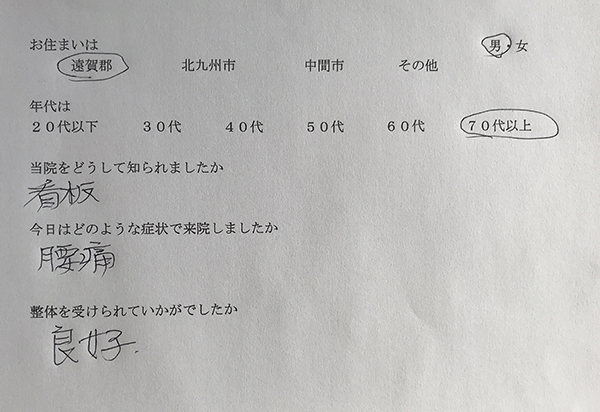 お住まいは 男・女
遠賀郡 北九州市 中間市 その他
年代は
２０代以下 ３０代 ４０代 ５０代 ６０代 ７０代以上
当院をどうして知られましたか
看板
今日はどのような症状で来院しましたか
腰痛
整体を受けられていかがでしたか
良好.